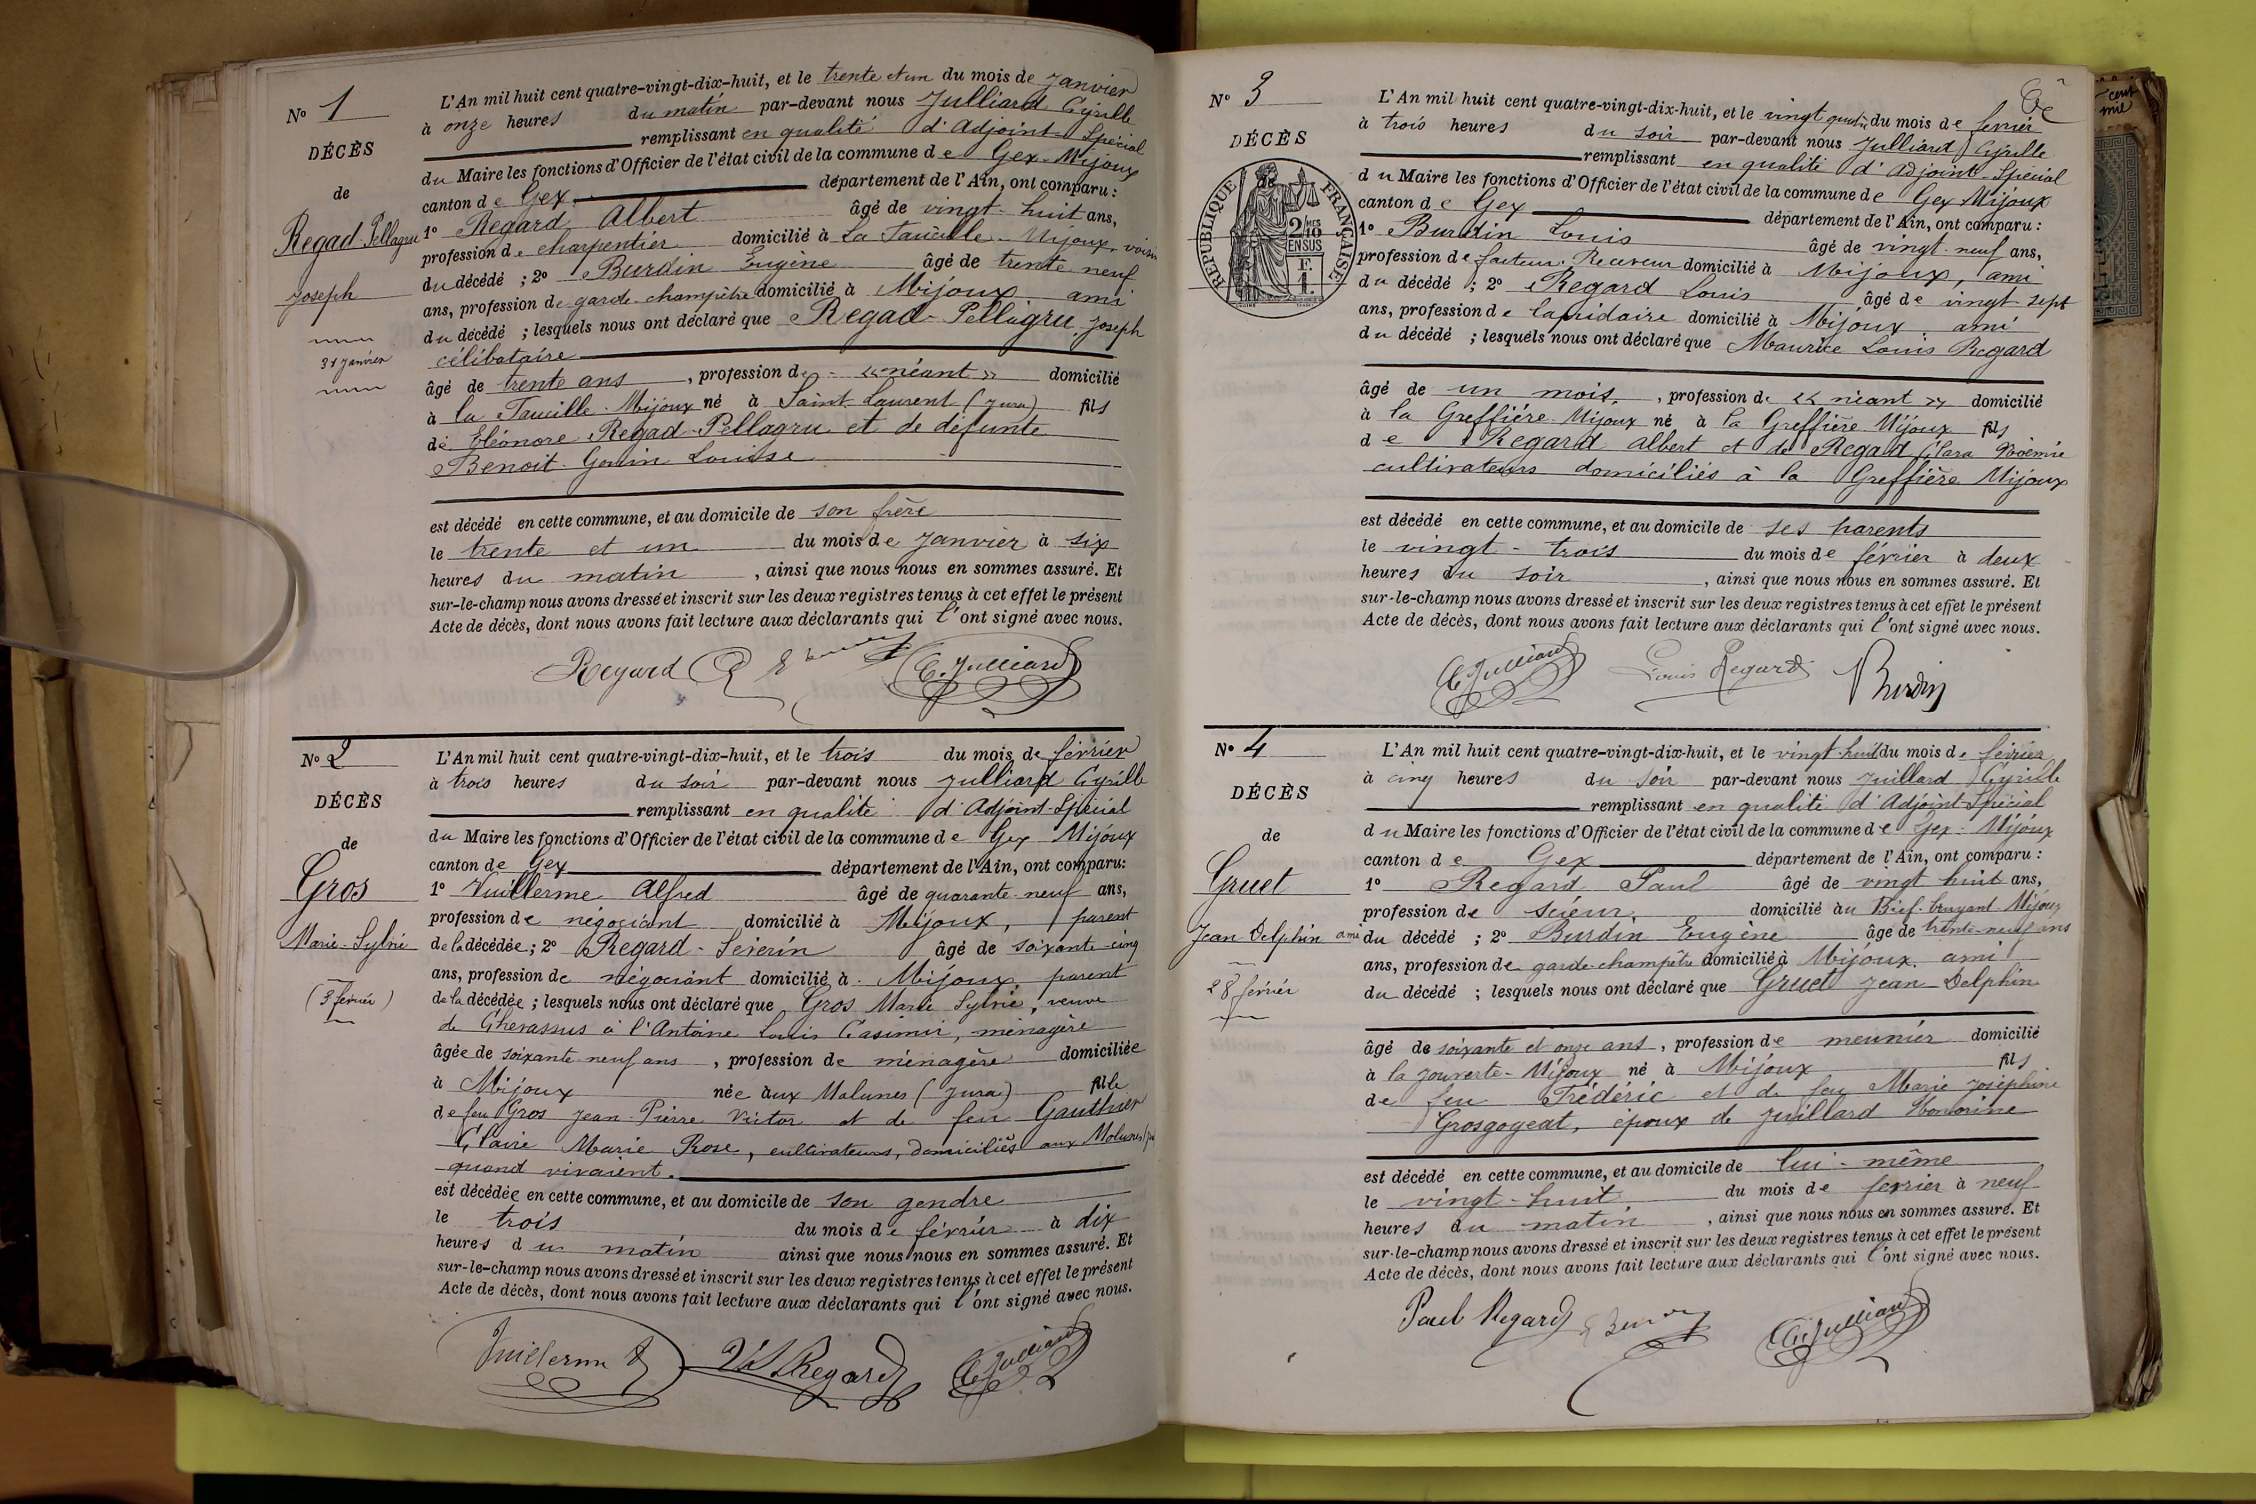 N° 1
DÉCÈS
de
Regad Pellagru
Joseph
31 Janvier
L'An mil huit cent quatre-vingt-dix-huit, et le trente et un du mois de Janvier
à onze heures du matin par-devant nous Julliard Cyrille
remplissant en qualité d'Adjoint Spécial
du Maire les fonctions d'Officier de l'état civil de la commune de Gex-Mijoux
canton de Gex département de l'Ain, ont comparu :
1° Regard Albert âgé de vingt-huit ans,
profession de charpentier domicilié à La Faucille-Mijoux, voisin
du décédé ; 2° Burdin Eugène âgé de trente neuf
ans, profession de garde-champêtre domicilié à Mijoux ami
du décédé ; lesquels nous ont déclaré que Regad-Pellagru, Joseph
célibataire
âgé de trente ans, profession de « néant » domicilié
à la Faucille-Mijoux né à Saint-Laurent (Jura) fils
de Eléonore Regad-Pellagru et de défunte
Benoit-Gonin Louise
est décédé en cette commune, et au domicile de son frère
le trente et un du mois de Janvier à six
heures du matin, ainsi que nous nous en sommes assuré. Et
sur-le-champ nous avons dressé et inscrit sur les deux registres tenus à cet effet le présent
Acte de décès, dont nous avons fait lecture aux déclarants qui l'ont signé avec nous.
Regard C. Julliard
N° 2
DÉCÈS
de
Gros
Marie-Sylvie
(3 février)
L'An mil huit cent quatre-vingt-dix-huit, et le trois du mois de février
à trois heures du soir par-devant nous Julliard Cyrille
remplissant en qualité d'Adjoint-Spécial
du Maire les fonctions d'Officier de l'état civil de la commune de Gex Mijoux
canton de Gex département de l'Ain, ont comparu :
1° Vuillerme Alfred âgé de quarante-neuf ans,
profession de négociant domicilié à Mijoux, parent
de la décédée ; 2° Regard-Séverin âgé de soixante-cinq
ans, profession de négociant domicilié à Mijoux, parent
de la décédée ; lesquels nous ont déclaré que Gros Marie Sylvie, veuve
de Chevassus à l'Antoine Louis Casimir, ménagère
âgée de soixante-neuf ans, profession de ménagère domiciliée
à Mijoux née aux Molunes (Jura) fille
de feu Gros Jean-Pierre Victor et de feu Gauthier
Claire Marie Rose, cultivateurs, domiciliés aux Molunes
quand vivaient.
est décédée en cette commune, et au domicile de son gendre
le trois du mois de février à dix
heures du matin ainsi que nous nous en sommes assuré. Et
sur-le-champ nous avons dressé et inscrit sur les deux registres tenus à cet effet le présent
Acte de décès, dont nous avons fait lecture aux déclarants qui l'ont signé avec nous.
Vuillerme Regard C. Julliard
N° 3
DÉCÈS
RÉPUBLIQUE FRANÇAISE
2/10 EN SUS
F. 1.
L'An mil huit cent quatre-vingt-dix-huit, et le vingt quatre du mois de février
à trois heures du soir par-devant nous Julliard Cyrille
remplissant en qualité d'Adjoint-Spécial
du Maire les fonctions d'Officier de l'état civil de la commune de Gex Mijoux
canton de Gex département de l'Ain, ont comparu :
1° Burdin Louis âgé de vingt-neuf ans,
profession de facteur-Receveur domicilié à Mijoux, ami
du décédé ; 2° Regard Louis âgé de vingt-sept
ans, profession de lapidaire domicilié à Mijoux, ami
du décédé ; lesquels nous ont déclaré que Maurice Louis Regard
âgé de un mois, profession de « néant » domicilié
à la Greffière-Mijoux né à la Greffière Mijoux fils
de Regard Albert et de Regad Clara Noémie
cultivateurs domiciliés à la Greffière Mijoux
est décédé en cette commune, et au domicile de ses parents
le vingt-trois du mois de février à deux
heures du soir, ainsi que nous nous en sommes assuré. Et
sur-le-champ nous avons dressé et inscrit sur les deux registres tenus à cet effet le présent
Acte de décès, dont nous avons fait lecture aux déclarants qui l'ont signé avec nous.
C. Julliard Louis Regard Burdin
N° 4
DÉCÈS
de
Gruet
Jean-Delphin
28 février
L'An mil huit cent quatre-vingt-dix-huit, et le vingt-huit du mois de février
à cinq heures du soir par-devant nous Juillard Cyrille
remplissant en qualité d'Adjoint-Spécial
du Maire les fonctions d'Officier de l'état civil de la commune de Gex-Mijoux
canton de Gex département de l'Ain, ont comparu :
1° Regard Paul âgé de vingt huit ans,
profession de scieur, domicilié au Bief-bruyant-Mijoux
ami du décédé ; 2° Burdin Eugène âgé de trente-neuf ans
ans, profession de garde-champêtre domicilié à Mijoux, ami
du décédé ; lesquels nous ont déclaré que Gruet Jean Delphin
âgé de soixante et onze ans, profession de meunier domicilié
à la Jouverte-Mijoux né à Mijoux fils
de feu Frédéric et de feu Marie Joséphine
Grosgogeat, époux de Juillard Honorine
est décédé en cette commune, et au domicile de lui-même
le vingt-huit du mois de février à neuf
heures du matin, ainsi que nous nous en sommes assuré. Et
sur-le-champ nous avons dressé et inscrit sur les deux registres tenus à cet effet le présent
Acte de décès, dont nous avons fait lecture aux déclarants qui l'ont signé avec nous.
Paul Regard C. Julliard
cent
mil